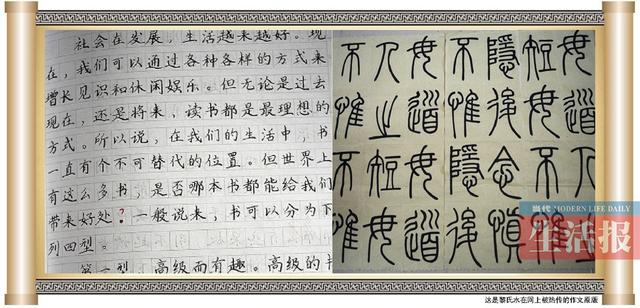 社会在发展，生活越来越好。现
在，我们可以通过各种各样的方式来
增长见识和休闲娱乐。但无论是过去
现在，还是将来，读书都是最理想的
方式。所以说，在我们的生活中，书
一直有个不可替代的位置。但世界上
有这么多书，是否哪本书都能给我们
带来好处？一般说来，书可以分为下
列四型。
第一型，高级而有趣。高级的
毋道人之
短毋不惟
隱後念慎
不惟隱後
毋道毋道
人之短毋
不惟不惟
当代 MODERN LIFE DAILY
生活报
这是黎氏水在网上被热传的作文原版